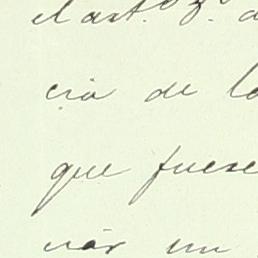 el art.º 3º. d
cia de lo
que fuese
nar un